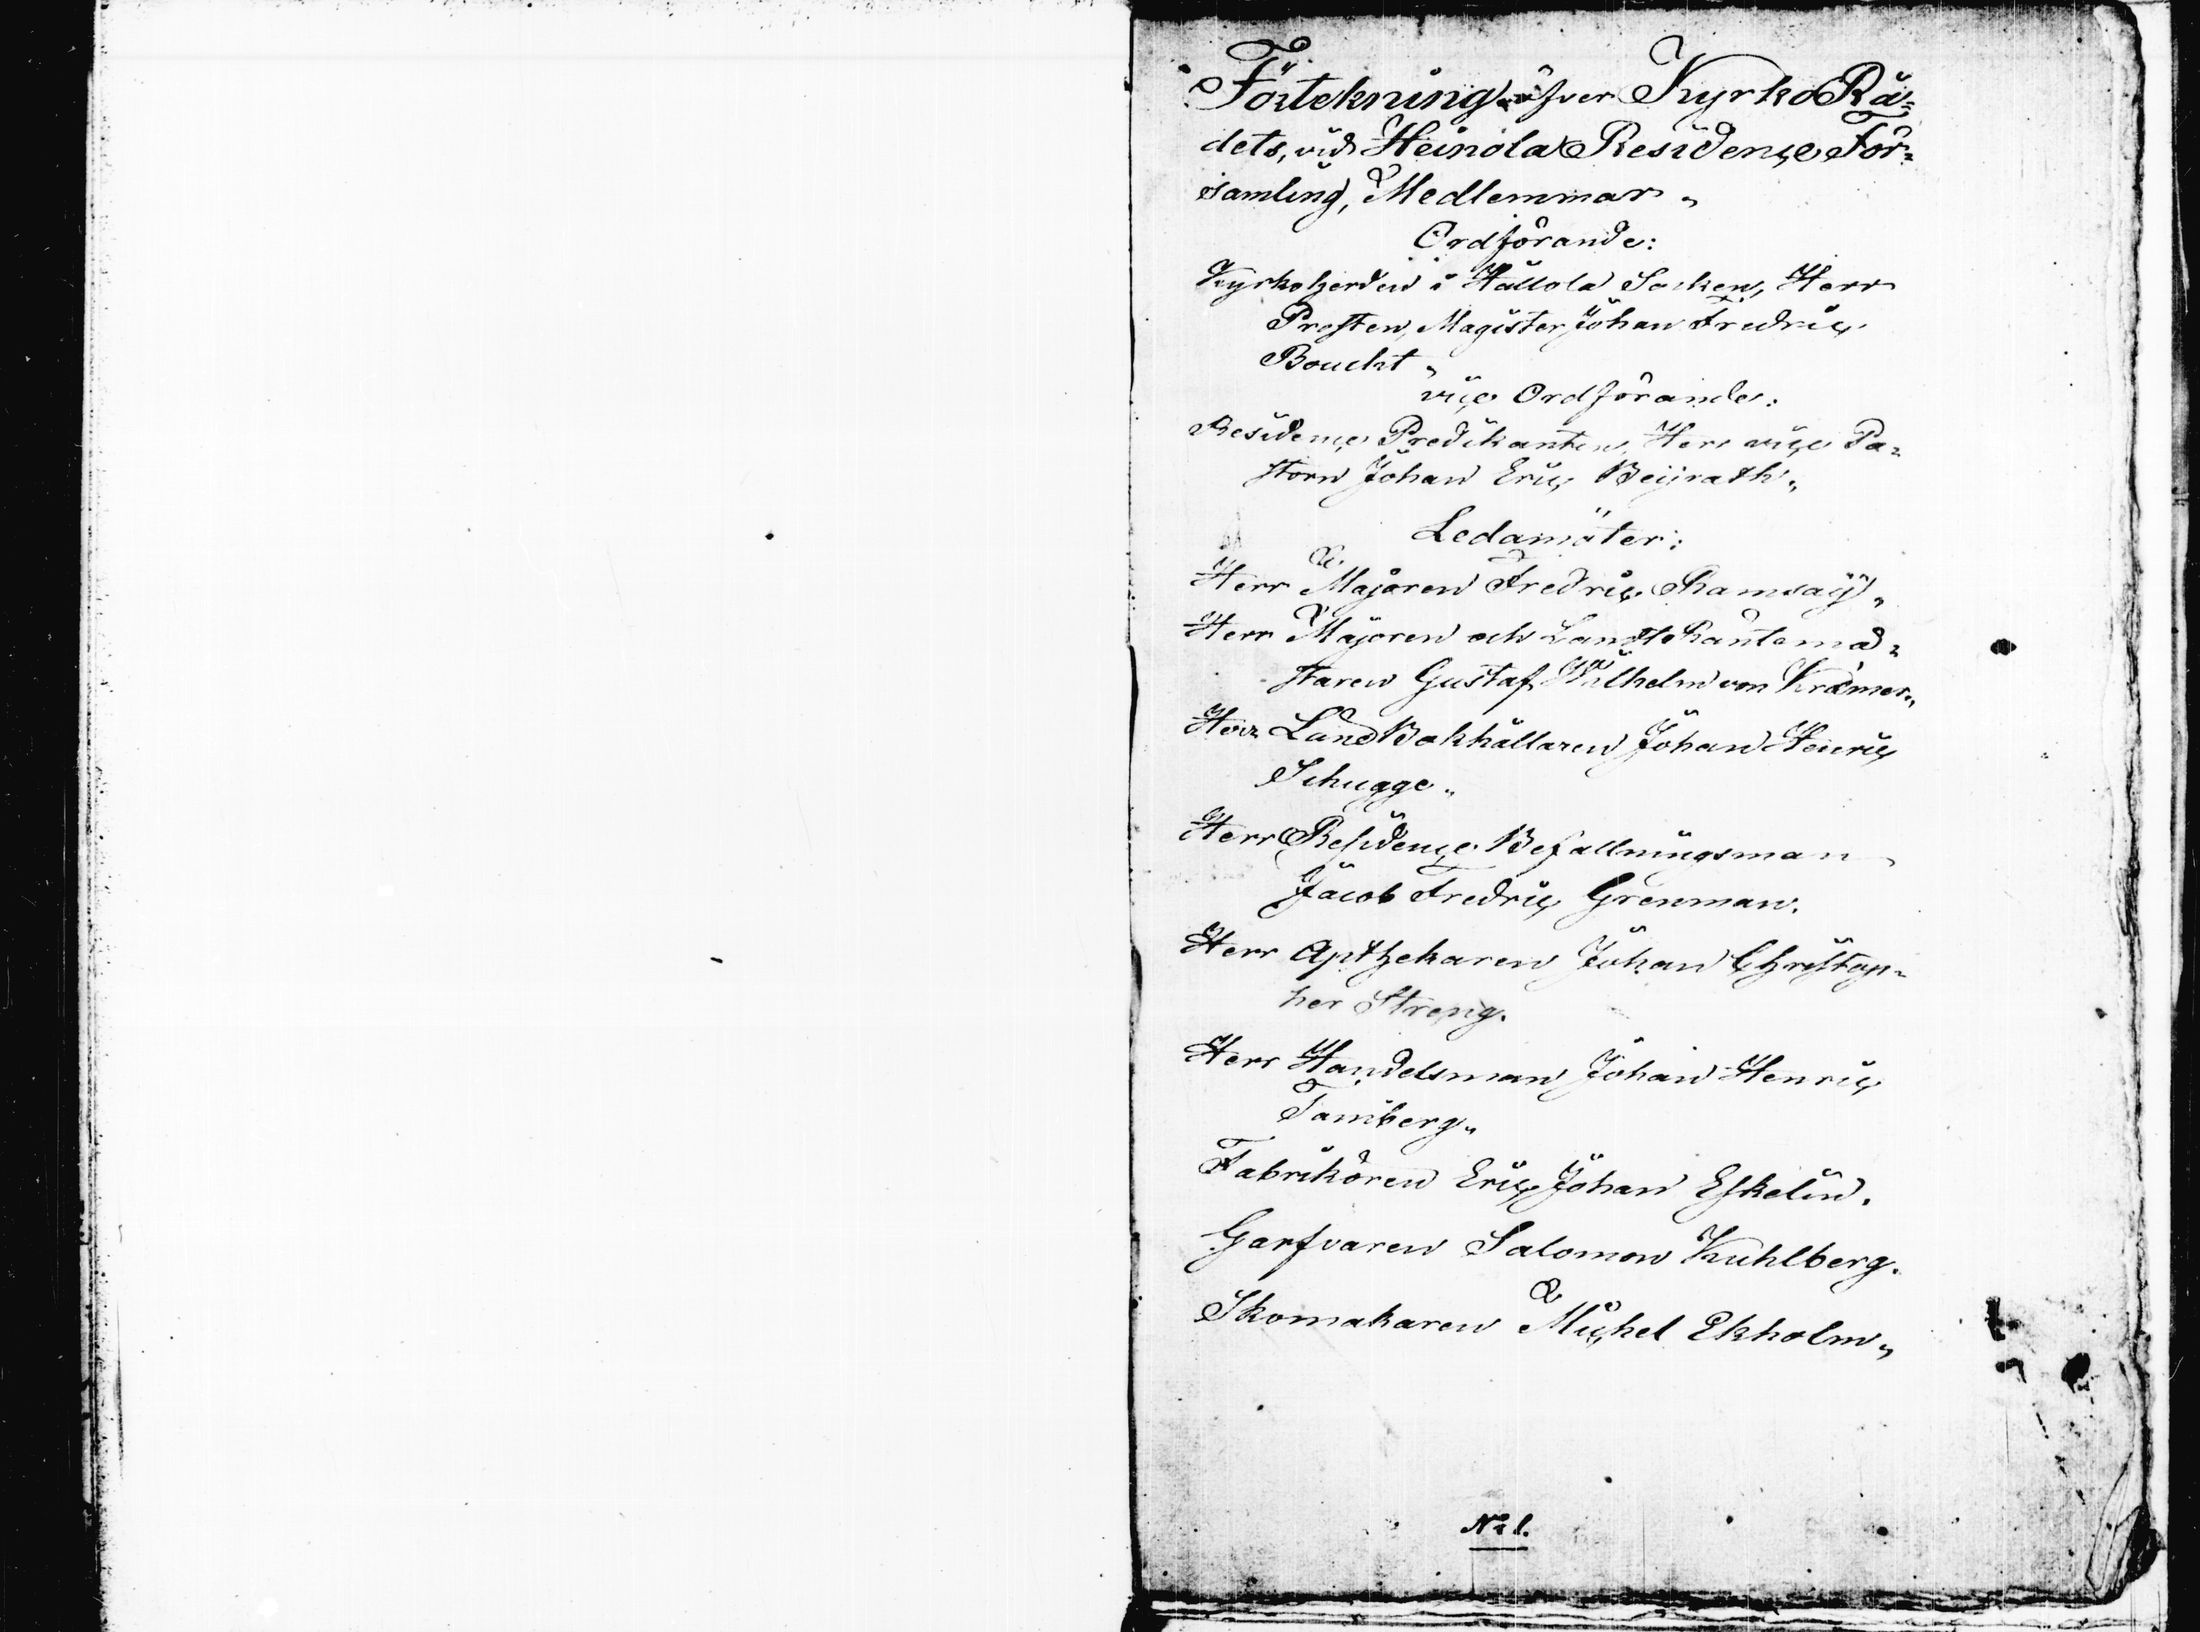 Förtekning öfver KyrkoRå=
dets, vid Heinola Residençe För=
samling, Medlemmar.
Ordförande:
Kyrkoherden i Hållola Socken, Herr
Prosten, Magister Johan Fredriç
Boucht.
viçe Ordförande:
Residençe Predikanten, Herr viçe Pa=
storn Johan Eriç Beÿrath.
Ledamöter:
Herr Majoren Fredriç Ramsaÿ.
Herr Majoren och Landt Räntemä=
staren Gustaf Wilhelm von Kræmer.
Herr LandBokhållaren Johan Henriç
Schugge.
Herr Residençe Befallningsman
Jacob Fredriç Grenman.
Herr Apthekaren Johan Christop=
her Streng.
Herr Handelsman Johan Henriç
Tamberg.
Fabrikören Eriç Johan Eskelin.
Garfvaren Salomon Kuhlberg.
Skomakaren Miçhel Ekholm.
No 1.